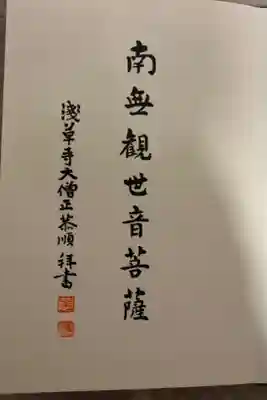 南無観世音菩薩
淺草寺大僧正恭順拜書